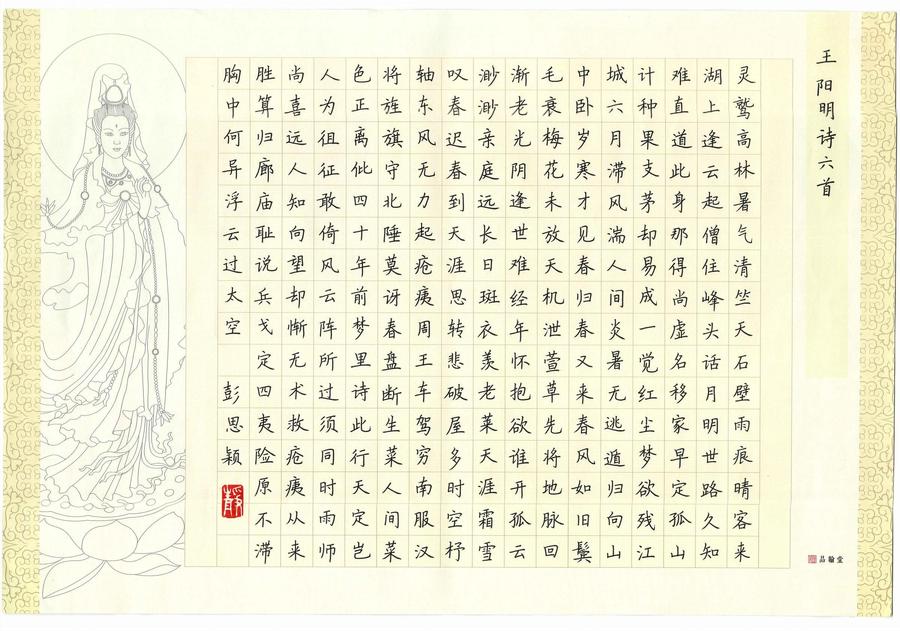 王阳明诗六首
灵鹫高林暑气清竺天石壁雨痕晴客来
湖上逢云起僧住峰头话月明世路久知
难直道此身那得尚虚名移家早定孤山
计种果支茅却易成一觉红尘梦欲残江
城六月滞风湍人间炎暑无逃遁归向山
中卧岁寒才见春归春又来春风如旧鬓
毛衰梅花未放天机泄萱草先将地脉回
渐老光阴逢世难经年怀抱欲谁开孤云
渺渺亲庭远长日斑衣羡老莱天涯霜雪
叹春迟春到天涯思转悲破屋多时空杼
轴东风无力起疮痍周王车驾穷南服汉
将旌旗守北陲莫讶春盘断生菜人间菜
色正离仳四十年前梦里诗此行天定岂
人为徂征敢倚风云阵所过须同时雨师
尚喜远人知向望却惭无术救疮痍从来
胜算归廊庙耻说兵戈定四夷险原不滞
胸中何异浮云过太空 彭思颖
静
品翰堂